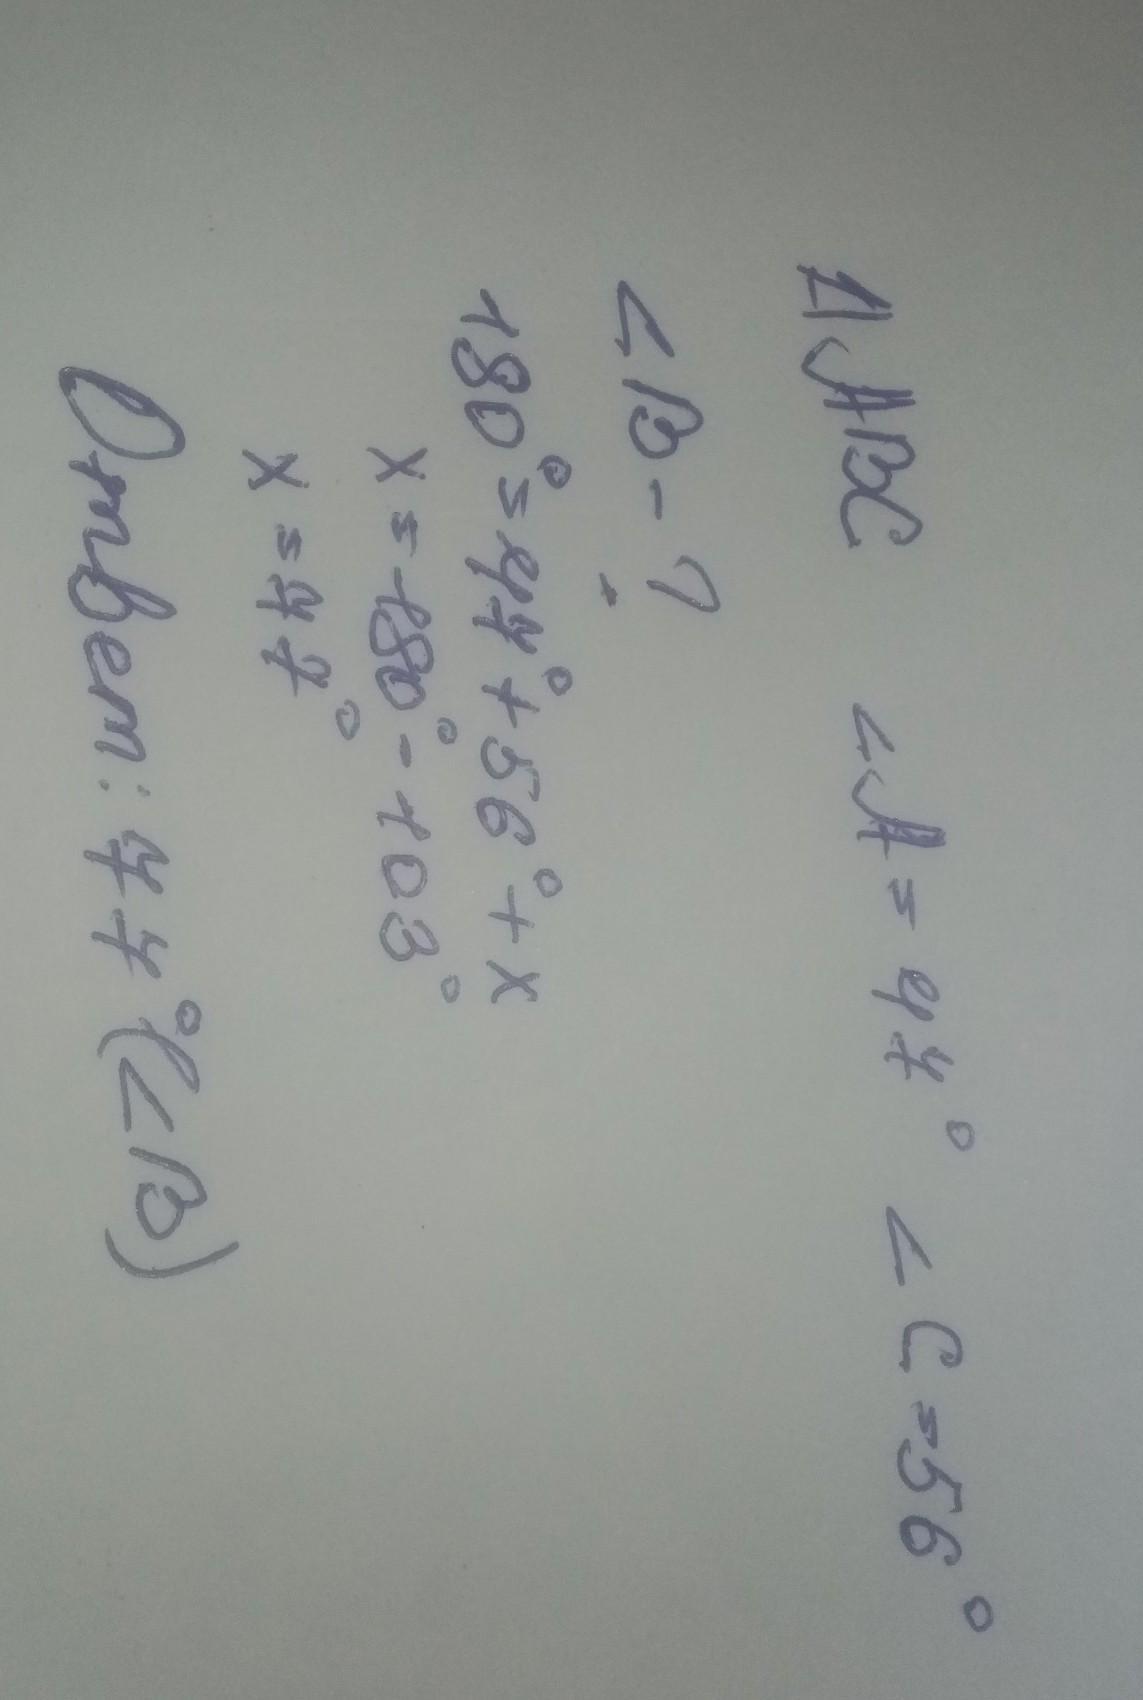 ΔABC ∠A = 47° ∠C = 56°
∠B - ?
180° = 47° + 56° + x
x = 180° - 103°
x = 77°
Ответ: 77° (∠B)